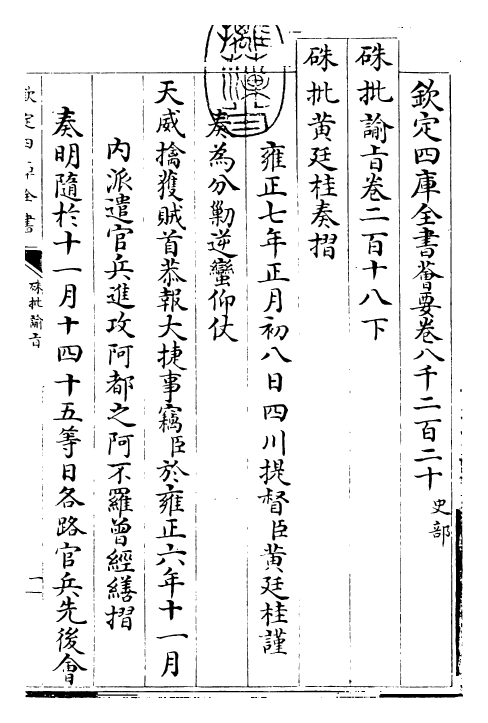 欽定四庫全書薈要卷八千二百二十 史部
硃批諭旨卷二百十八下
硃批黄廷桂奏摺
雍正七年正月初八日四川提督臣黄廷桂謹
奏為分勦逆蠻仰仗
天威擒獲賊首恭報大捷事竊臣於雍正六年十一月
内派遣官兵進攻阿都之阿不羅曾經繕摺
奏明隨於十一月十四十五等日各路官兵先後會
欽定四庫全書
硃批諭旨
一